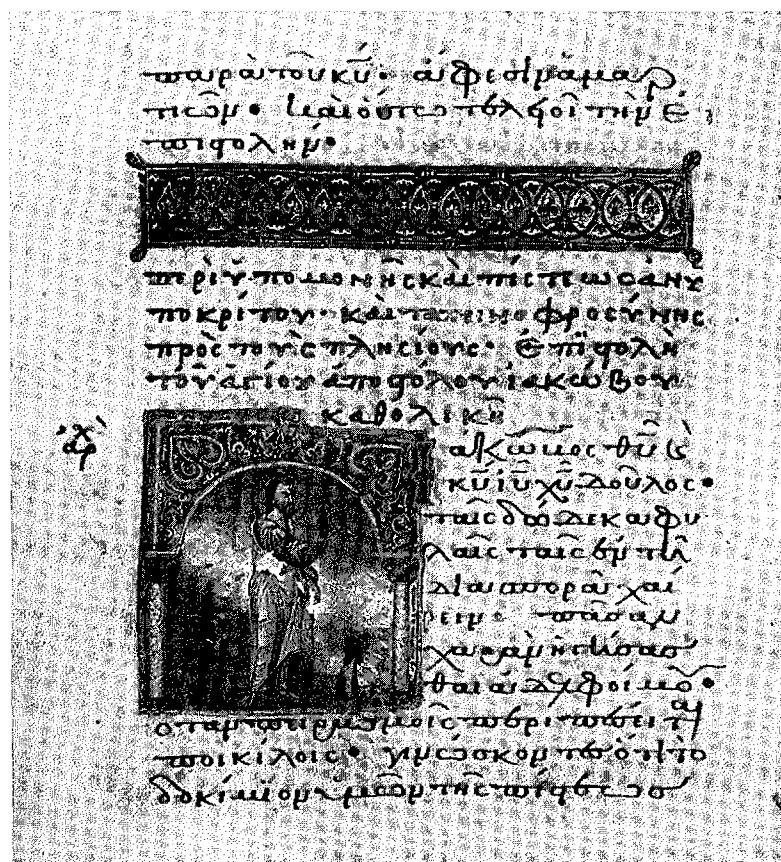 παρὰ τοῦ κ̅υ̅· ἄφεσιν ἁμαρ
τιῶν· καὶ οὕτω τελειοῖ τὴν ἐ
πιστολήν·
περὶ ὑπομονῆς καὶ πίστεως ἀνυ
ποκρίτου· καὶ ταπεινοφροσύνης
πρὸς τοὺς πλησίους· ἐπιστολὴ
τοῦ ἁγίου ἀποστόλου ἰακώβου
καθολικὴ
ἀρχ
άκωβος θ̅υ̅ κ̀
κ̅υ̅ ι̅υ̅ χ̅υ̅ δοῦλος·
ταῖς δώδεκα φυ
λαῖς ταῖς ἐν τῆ
διασπορᾶ χαί
ρειν· πᾶσαν
χαρὰν ἡγήσασ
θαι ἀδελφοί μου·
ὅταν πειρασμοῖς περιπέσηται
ποικίλοις· γινώσκοντες ὅτι τὸ
δοκίμϊον ὑμῶν τῆς πίστεως